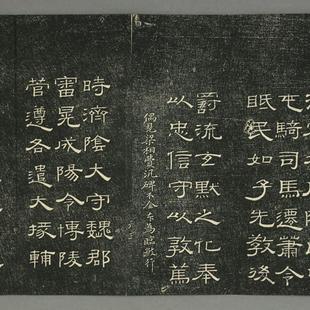 屯騎司馬遷蕭令
眂民如子先教後
罰流玄默之化奉
以忠信守以敦篤
偶見梁相費汎碑不全本為臨數行
時濟陰大守魏郡
審晃成陽令博陵
管遵各遣大掾輔